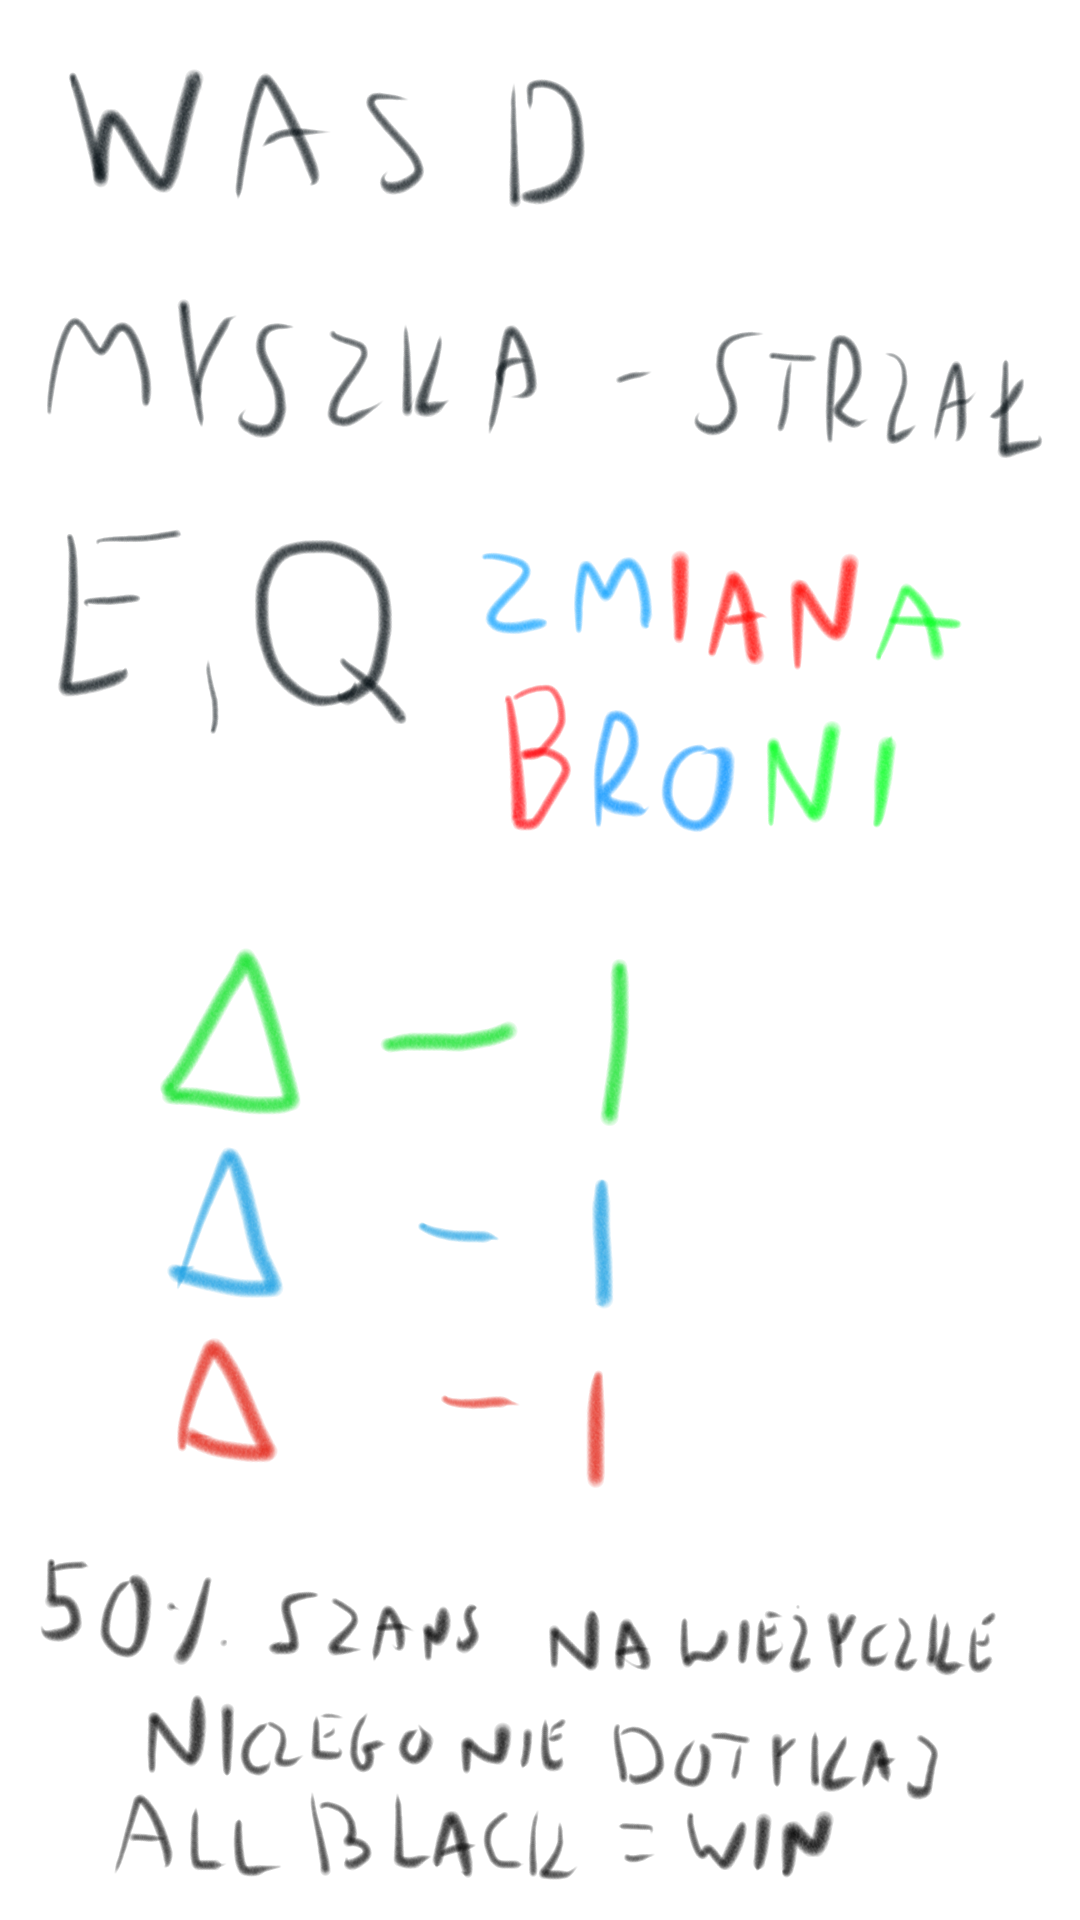 WASD
MYSZKA - STRZAŁ
E,Q ZMIANA
BRONI
Δ - 1
Δ - 1
Δ - 1
50% SZANS NA WIEŻYCZKE
NICZEGO NIE DOTYKAJ
ALL BLACK = WIN